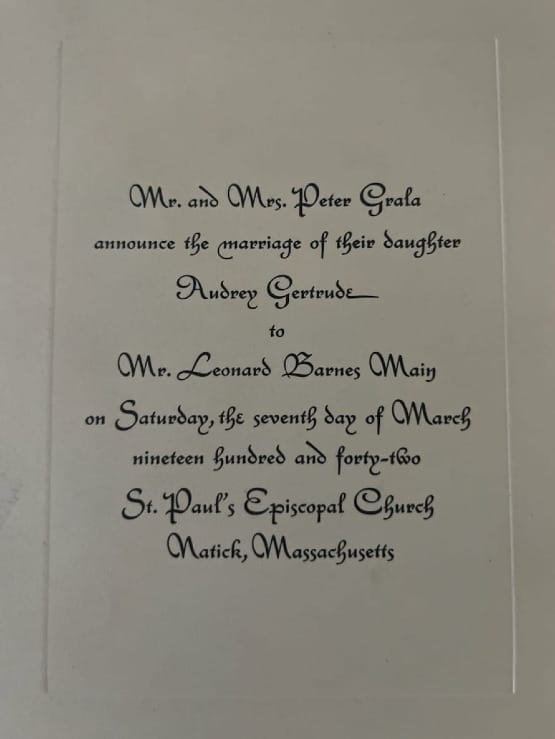 Mr. and Mrs. Peter Grala
announce the marriage of their daughter
Audrey Gertrude
to
Mr. Leonard Barnes Main
on Saturday, the seventh day of March
nineteen hundred and forty-two
St. Paul's Episcopal Church
Natick, Massachusetts